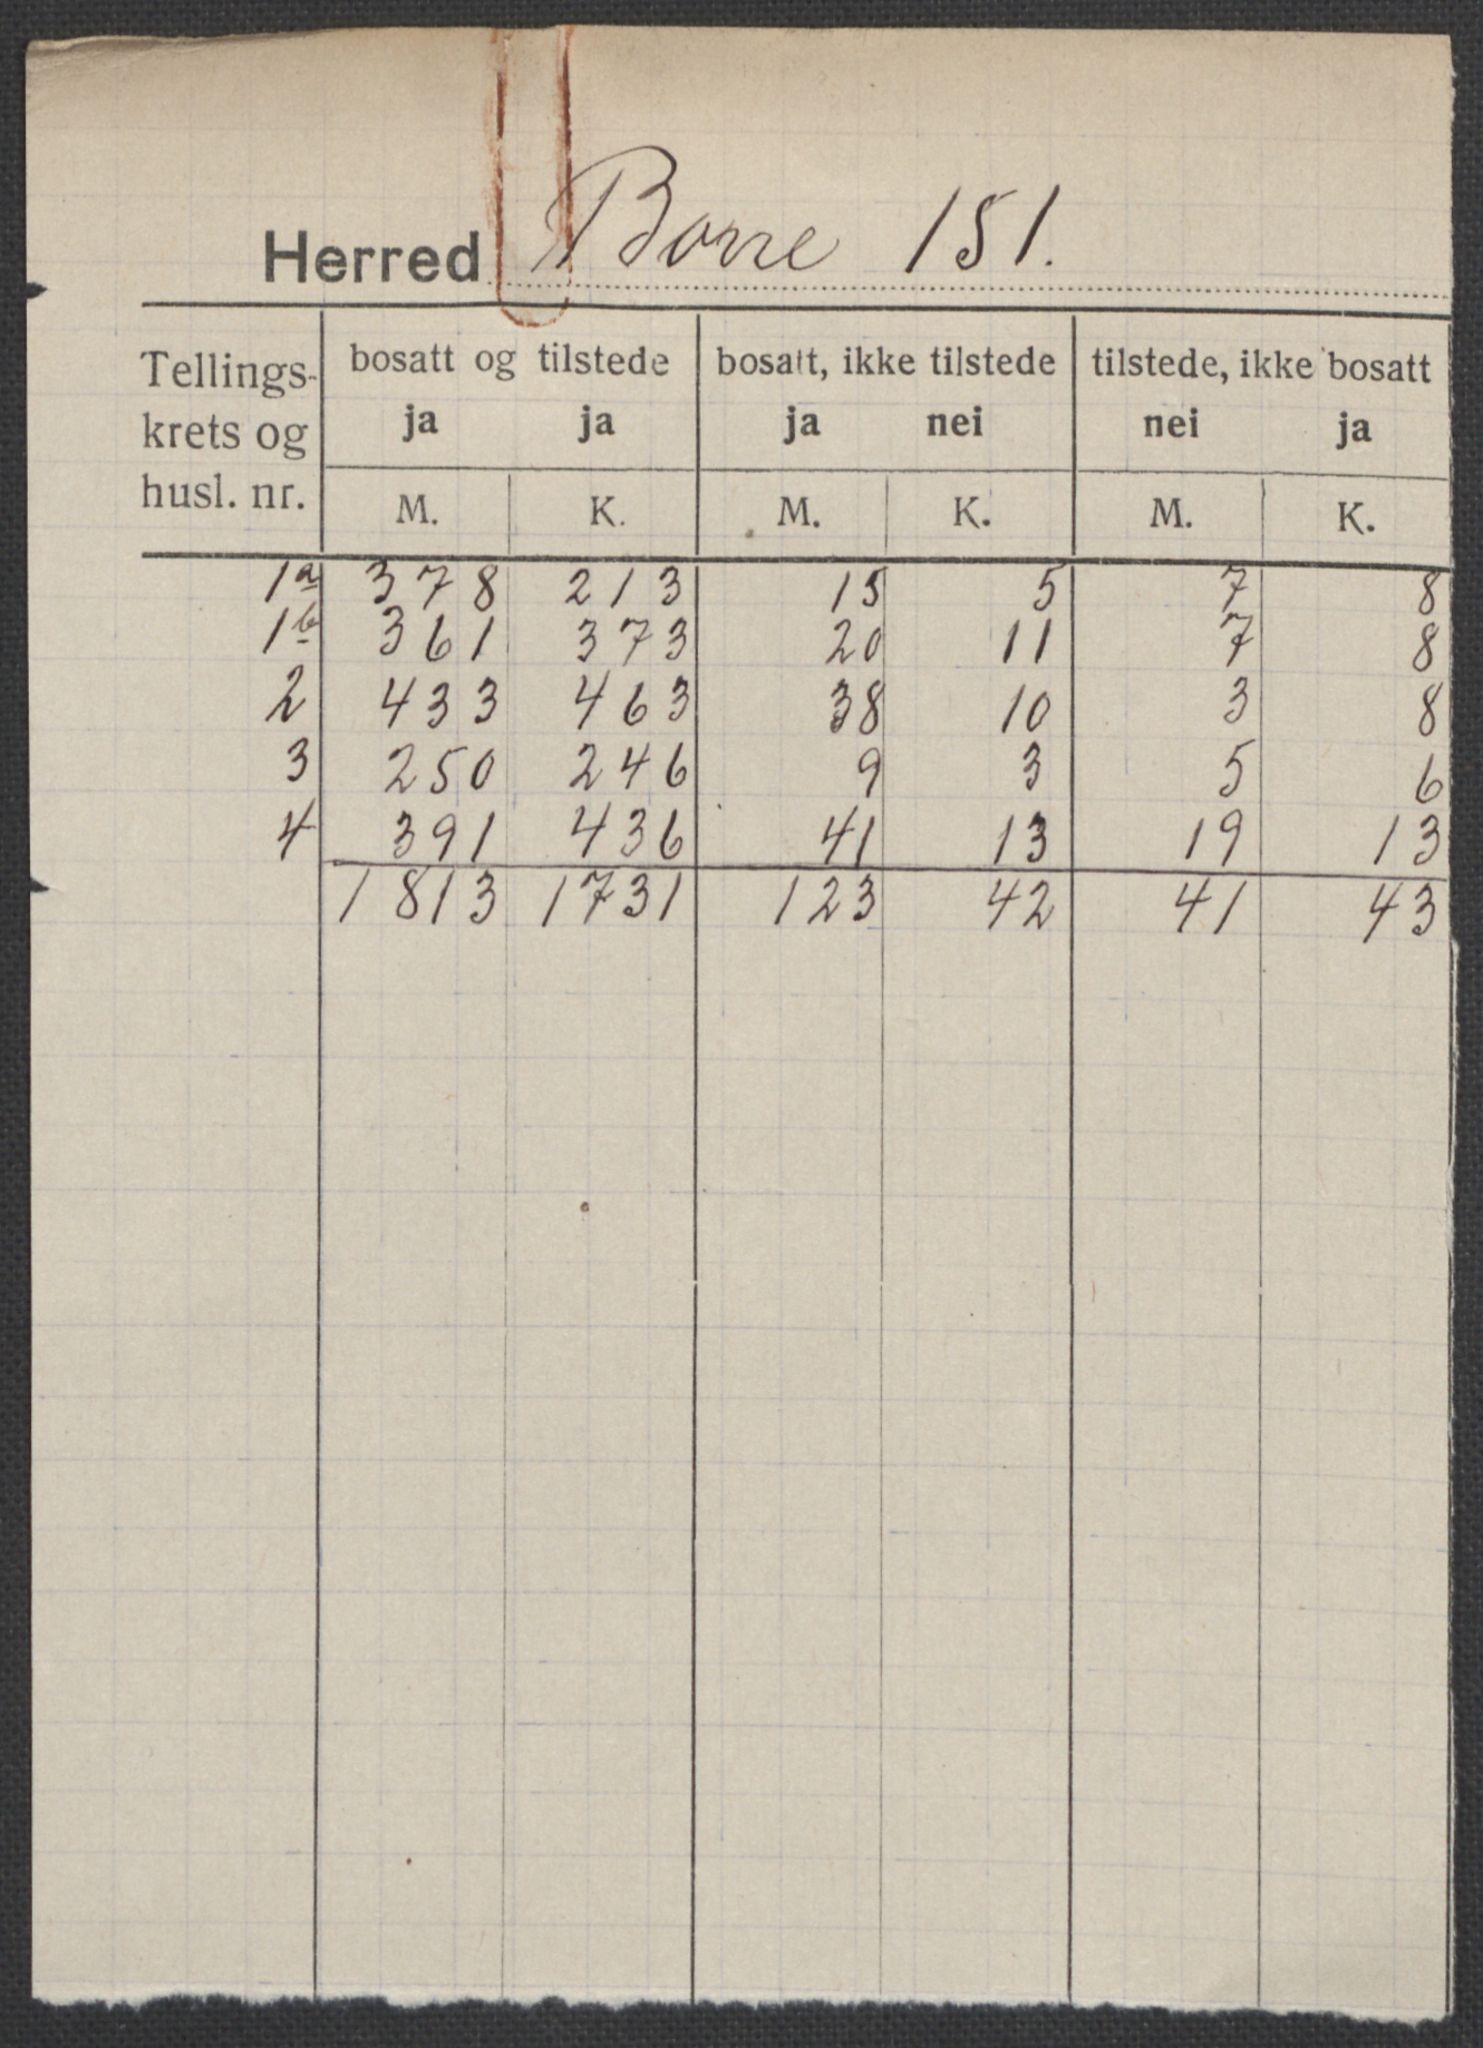 Herred Borre 151.
Tellings-krets og husl. nr. | bosatt og tilstede | bosatt, ikke tilstede | tilstede, ikke bosatt
ja ja | ja nei | nei ja
M. K. | M. K. | M. K.
1a 378 213 15 5 7 8
1b 361 373 20 11 7 8
2 433 463 38 10 3 8
3 250 246 9 3 5 6
4 391 436 41 13 19 13
1813 1731 123 42 41 43